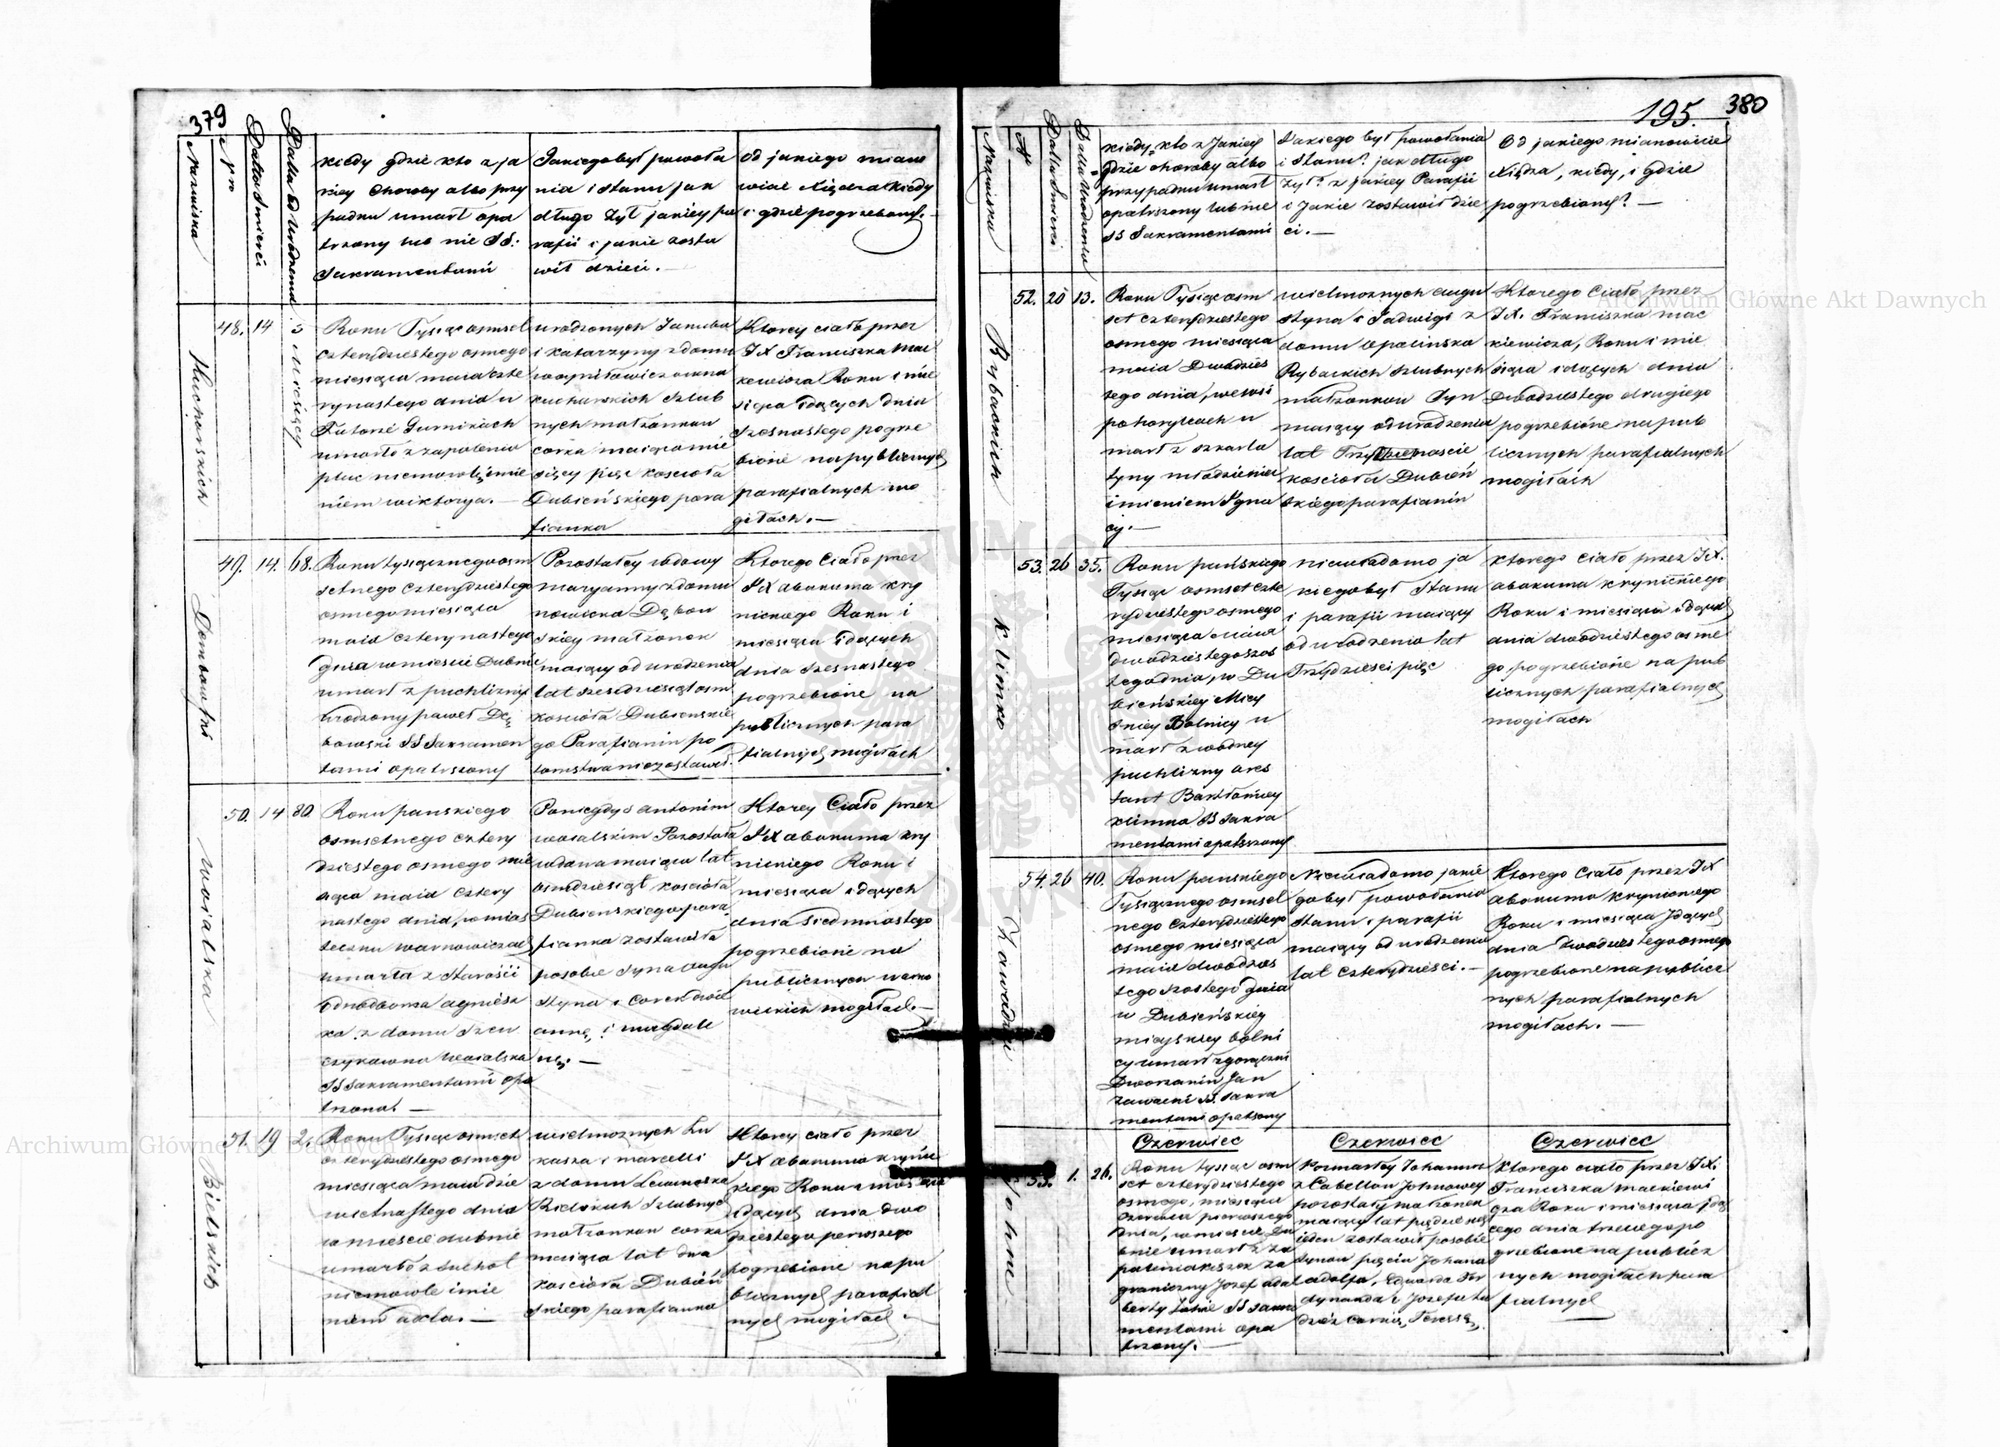 379
Nazwiska
Nro
Datta Śmierci
Datta od Urodzenia
kiedy gdzie kto z ja
kiey choroby albo przy
padku umarł opa
trzony lub nie SS:
Sakramentami
Jakiego był powoła
nia i stanu jak
długo żył jakiey pa
rafii i jakie zosta
wił dzieci.
Od jakiego miano
wicie Xiędza kiedy
i gdzie pogrzebany.
Kucharskich
48. 14 5 Miesięcy
Roku Tysiąc osmset
czterdziestego osmego
miesiąca maia czte
rynastego dnia w
Futorze Surmiczach
umarło z zapalenia
płuc niemowlę imie
niem wiktorya.
urodzonych Jakuba
i katarzyny z domu
kucharskich szlub
nych małżonkow
corka maiąca mie
sięcy pięć kościoła
Dubieńskiego para
fianka
Ktorey ciało przez
JX Franciszka Mac
kiewicza Roku i mie
siąca idących dnia
szesnastego pogrze
bione na publicznych
parafialnych mo
giłach.
Dombowski
49. 14. 68.
Roku tysiącznego osm
setnego czterydziestego
osmego miesiąca
maia czterynastego
dnia w mieście Dubnie
umarł z puchliny
urodzony paweł Dę
bowski SS Sakramen
tami opatrzony
Pozostałey wdowy
maryanny z domu
nowicka Dębow
skiey małżonek
maiący od urodzenia
lat szesdziesiąt osm
kościoła Dubienskie
go Parafianin po
tomstwa niezostawił.
Ktorego Ciało przez
JX abakuma kry
nickiego Roku i
miesiąca idących
dnia szesnastego
pogrzebione na
publicznych para
fialnych mogiłach
Wasalska
50. 14 80
Roku panskiego
osmsetnego cztery
dziestego osmego mie
siąca maia cztery
nastego dnia, w mias
teczku warkowiczach
umarła z starości
agniesz
ka z domu
wasalska
SS Sakramentami opa
trzona.
Poniegdyś antonim
wasalskim Pozostała
wdowa maiąca lat
osmdziesiąt, kościoła
Dubienskiego para
fianka zostawiła
posobie syna augu
styna i corek dwie
annę, i magdale
nę.
Ktorey Ciało przez
JX abakuma kry
nickiego Roku i
miesiąca idących
dnia siedmnastego
pogrzebione na
publicznych warko
wickich mogiłach.
Bielskich
51. 19 2.
Roku Tysiąc osmset
czterydziestego osmego
miesiąca maia dzie
więtnastego dnia
w mieście dubnie
umarło z suchot
niemowle imie
niem adela.
wielmożnych Łu
kasza i marcelli
z domu
Bielskich szlubnych
małżonkow corka
maiąca lat dwa
kościoła Dubień
skiego parafianka
Ktorey ciało przez
JX abakuma kryni
ckiego Roku i mies
idących dnia dwo
dziestego pierwszego
pogrzebione na pu
blicznych parafial
nych mogiłach.
195. 380
Nazwiska
N
Datta Śmierci
Datta Urodzenia
kiedy, kto z Jakiey
gdzie choroby albo
przypadku umarł
opatrzony lub nie
SS Sakramentami
Jakiego był powołania
i stanu? jak długo
żył? z jakiey Parafii
i Jakie zostawił dzie
ci.
Od jakiego mianowicie
Xiędza, kiedy, i gdzie
pogrzebiony?
Rybackich
52. 20 13.
Roku Tysiąc osm
set czterydziestego
osmego miesiąca
maia Dwudzies
tego dnia, we wsi
pohorylcach u
marł z szkarla
tyny młodzieniec
imieniem Igna
cy.
wielmożnych augu
styna i Jadwigi z
domu opalińska
Rybackich szlubnych
małżonkow Syn
maiący od urodzenia
lat Trzynascie
kościoła Dubień
skiego parafianin
Ktorego Ciało przez
JX. Franciszka mac
kiewicza, Roku i mie
siąca idących dnia
Dwódziestego drugiego
pogrzebione na pub
licznych parafialnych
mogiłach
Klimko
53. 26 35.
Roku pańskiego
Tysiąc osmset czte
rydziestego osmego
miesiąca maia
dwudziestego szos
tego dnia, w Du
bieńskiey Miey
skiey Bolnicy u
marł z wodney
puchliny ares
tant Bartłomiey
klimka SS Sakra
mentami opatrzony
niewiadomo ja
kiego był Stanu
i parafii maiący
od urodzenia lat
Trzydzieści pięć
ktorego Ciało przez JX.
abakuma krynickiego
Roku i miesiąca idących
dnia dwodziestego osme
go, pogrzebione na pub
licznych parafialnych
mogiłach
Zawadzki
54. 26 40.
Roku panskiego
Tysiącznego osmset
nego czterydziestego
osmego miesiąca
maia dwodzies
tego szostego dnia
w Dubieńskiey
mieyskiey bolni
cy umarł z gorączki
Dworzanin Jan
zawacki SS. Sakra
mentami opatrzony
Niewiadomo jakie
go był powołania
stanu i parafii
maiący od urodzenia
lat czterydzieści.
Ktorego Ciało przez JX
abakuma krynickiego
Roku i miesiąca Idących
dnia dwodziestego osmego
pogrzebione na publicz
nych parafialnych
mogiłach.
Czerwiec Czerwiec Czerwiec
John
55. 1. 26.
Roku tysiąc osm
set czterydziestego
osmego, miesiąca
czerwca pierwszego
dnia, w mieście Du
bnie umarł z za
palenia kiszek za
graniczny Jozef adal
berty John SS Sakra
mentami opa
trzony.
pozostały małżonek
zostawił posobie
synow pięciu Johana
adolfa, Eduarda Fer
dynanda i Jozefa tu
dzież corkę, Teressę.
ktorego ciało przez JX.
Franciszka mackiewi
cza Roku i miesiąca idą
cego dnia trzeciego po
grzebione na publicz
nych mogiłach para
fialnych
Archiwum Główne Akt Dawnych
Archiwum Główne Akt Dawnych